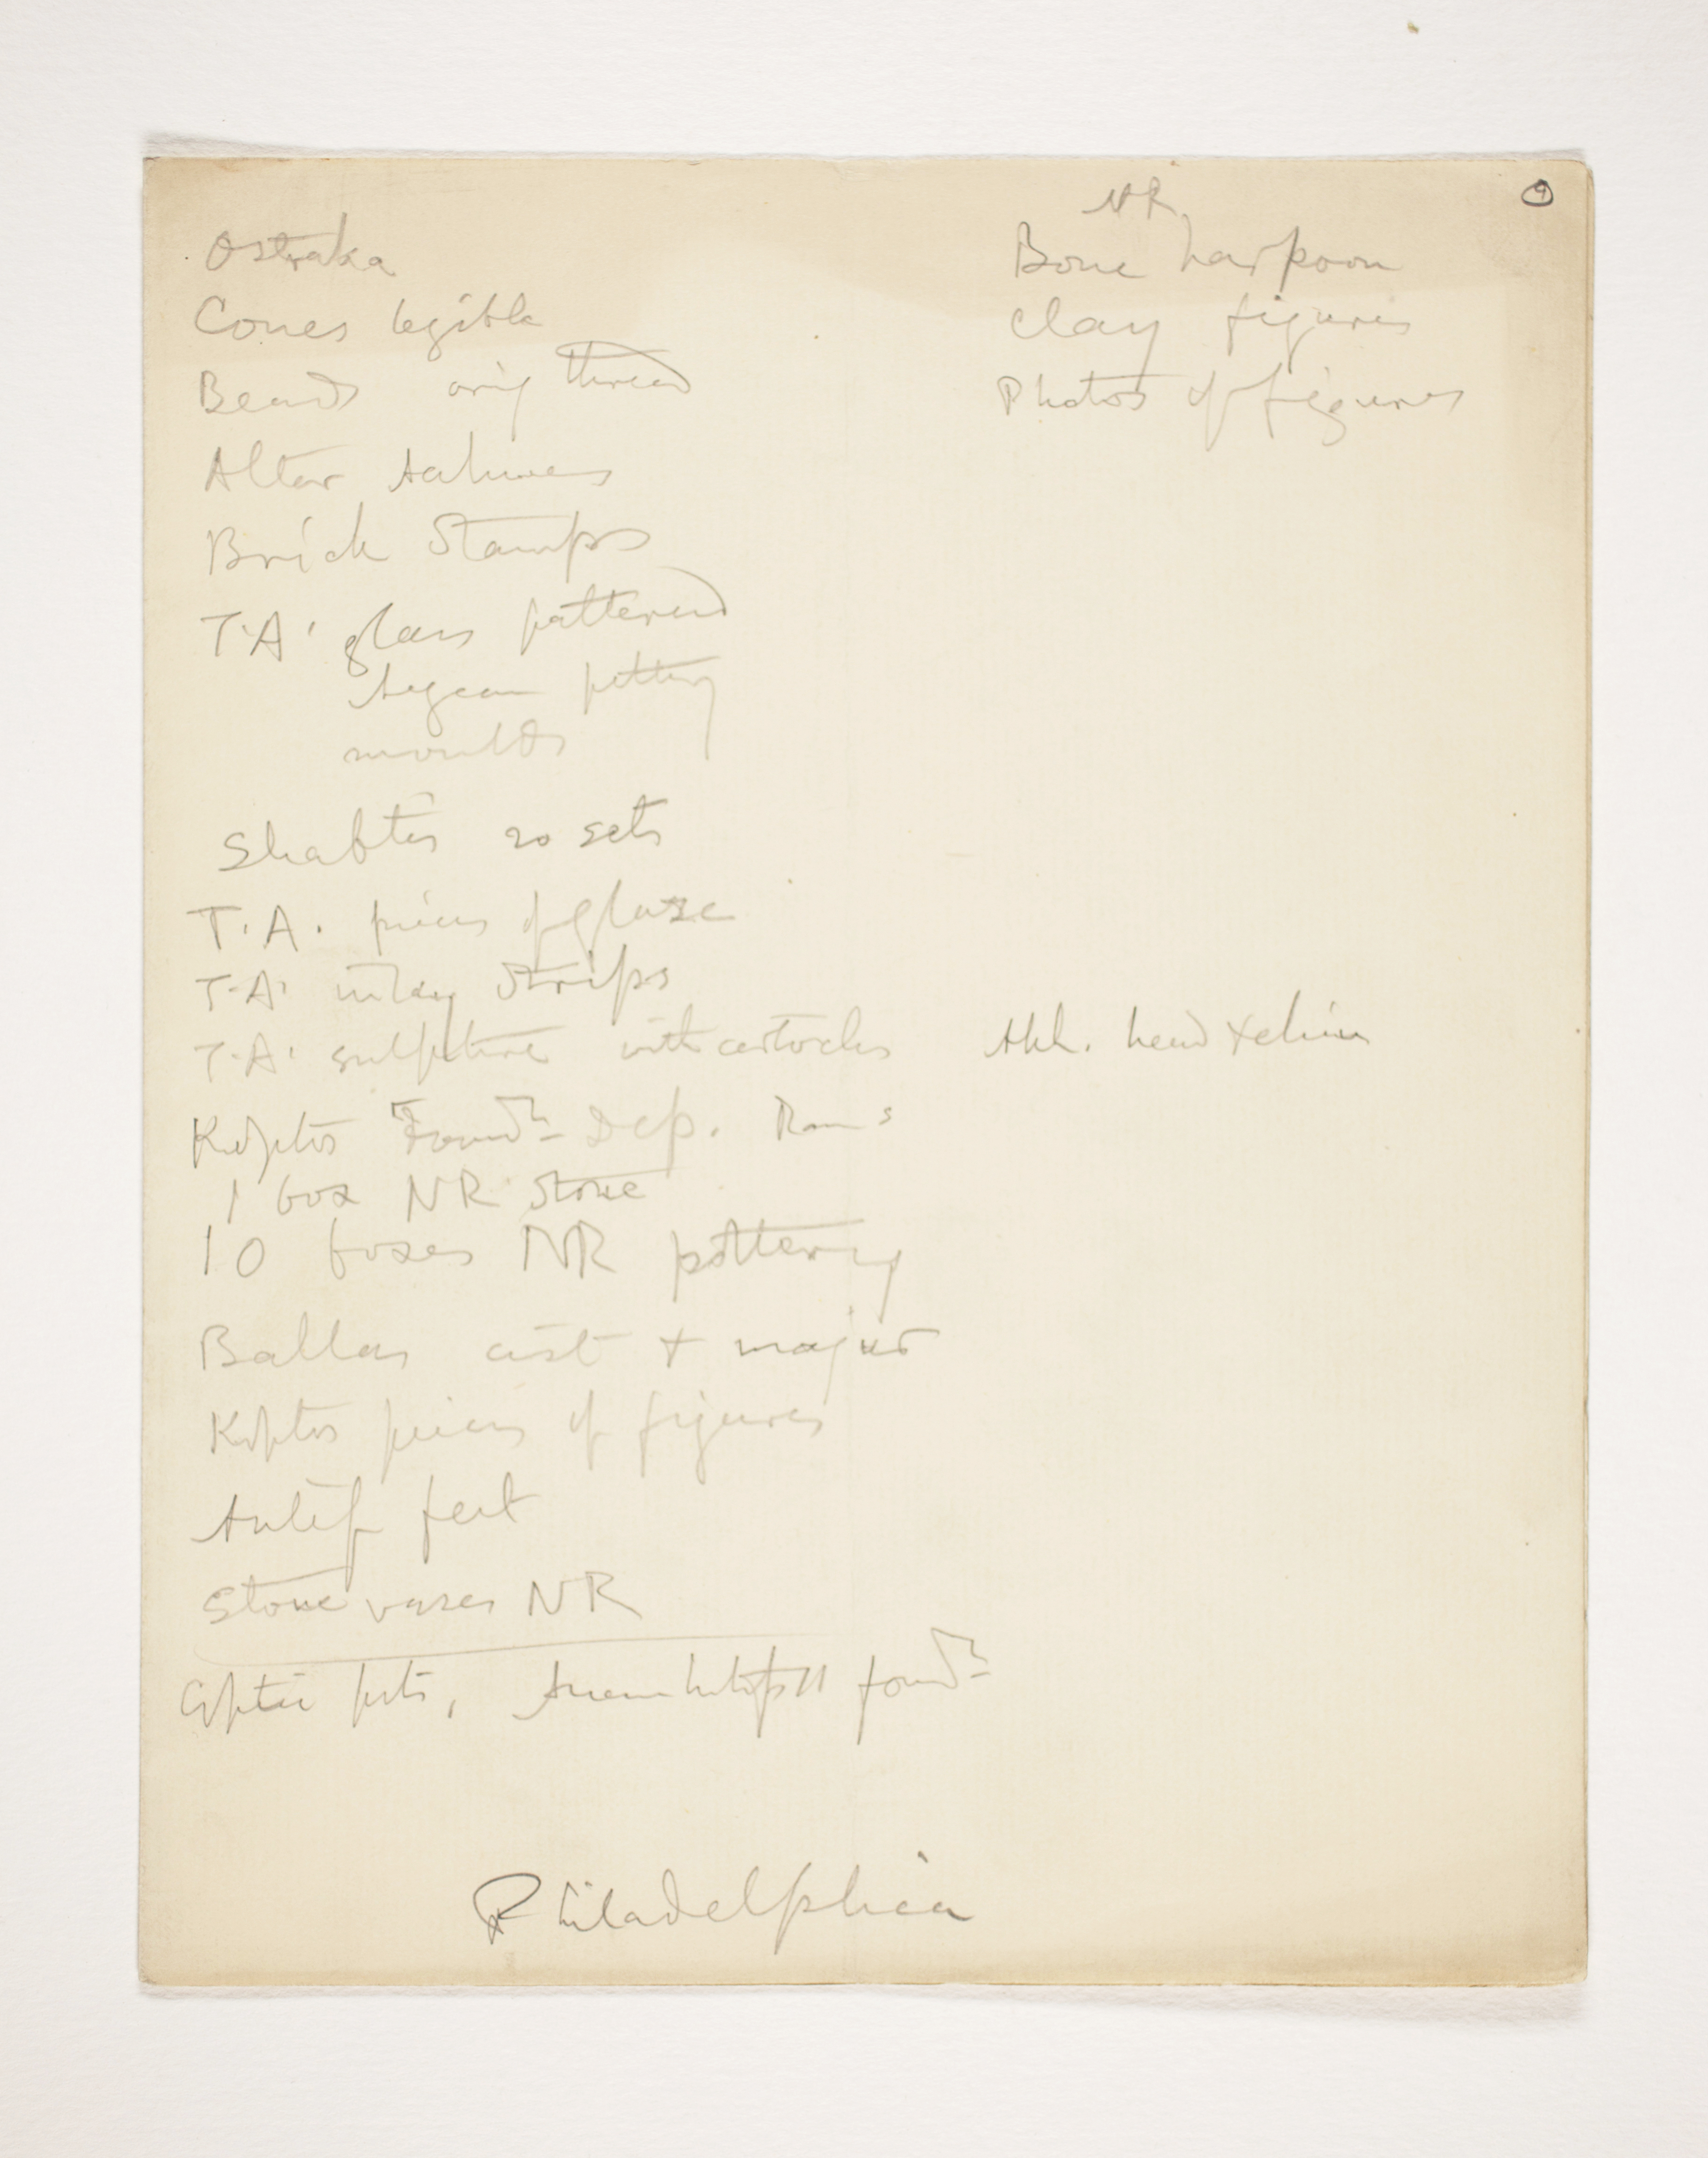 9
Ostraka
Cones legible
Beads orig thread
Altar Aahmes
Brick Stamps
T.A. glass patterned
Aegean pottery
moulds
Shabtis 20 sets
T.A. pieces of glaze
T.A. inlay strips
T.A. sulpture with cartouches
Koptos Foundn Dep. Rams
1 box NR Stone
10 boxes NR pottery
Ballas cist + majur
Koptos pieces of figures
Antef feet
Stone vases NR
Coptic pots, Amenhotep II foundn
NR
Bone harpoon
Clay figures
Photos of figures
Akh. head + chin
Philadelphia